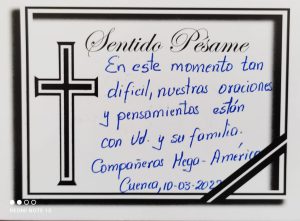 Sentido Pésame
En este momento tan
dificil, nuestras oraciones
y pensamientos están
con Ud. y su familia.
Compañeras Hega-América
Cuenca, 10-03-2022
REDMI NOTE 10